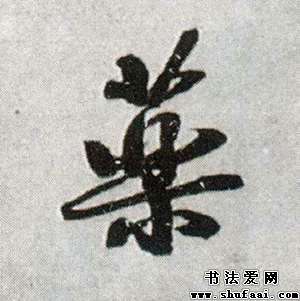 藥
书法爱网
www.shufaai.com